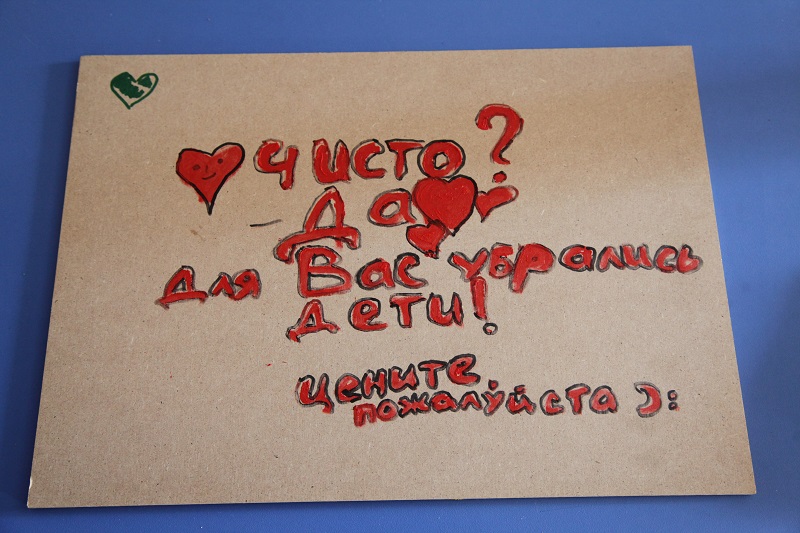 Чисто?
- Да
Для Вас убрались
дети!
Цените,
пожалуйста ):